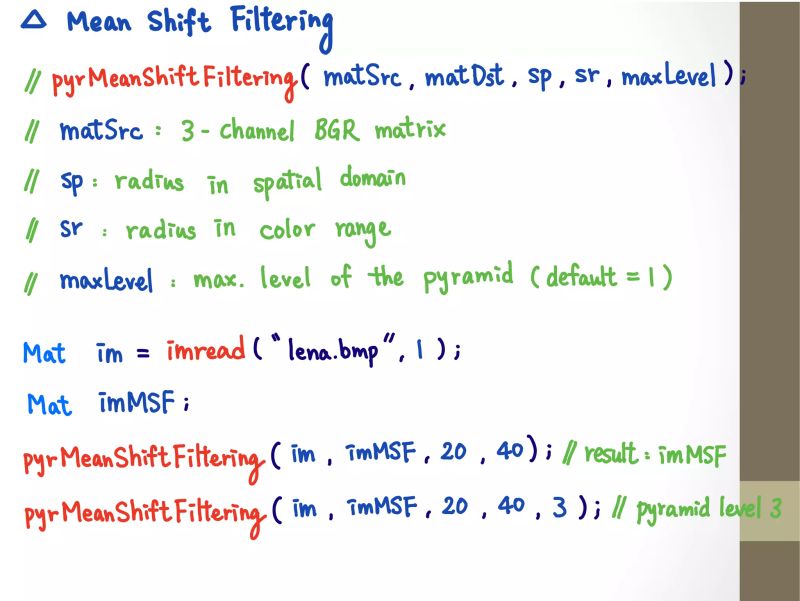 △ Mean Shift Filtering
// pyrMeanShiftFiltering( matSrc, matDst, sp, sr, maxLevel );
// matSrc : 3-channel BGR matrix
// sp : radius in spatial domain
// sr : radius in color range
// maxLevel : max. level of the pyramid (default = 1)
Mat im = imread("lena.bmp", 1);
Mat imMSF;
pyrMeanShiftFiltering( im, imMSF, 20, 40); // result : imMSF
pyrMeanShiftFiltering( im, imMSF, 20, 40, 3 ); // pyramid level 3